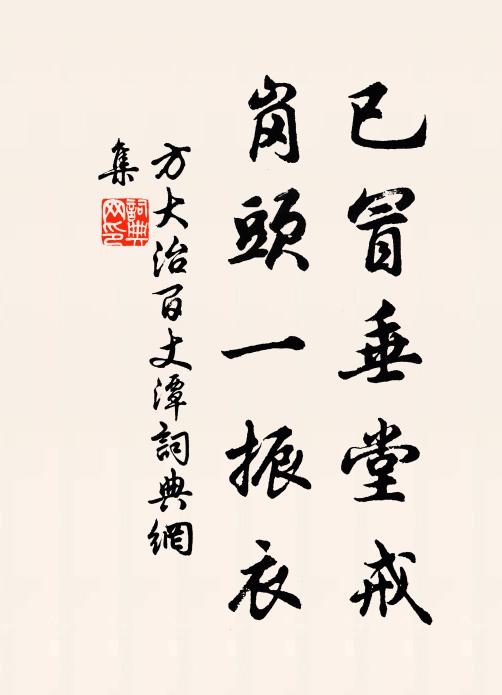 已冒垂堂戒
崗頭一振衣
方大治百丈潭詞典網
集
詞典網印